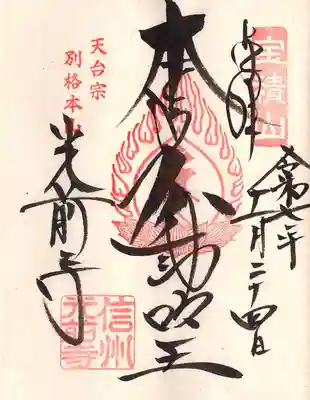 奉拝
宝積山
令和七年
十一月二十四日
本尊
不動明王
天台宗
別格本山
光前寺
信州
光前寺